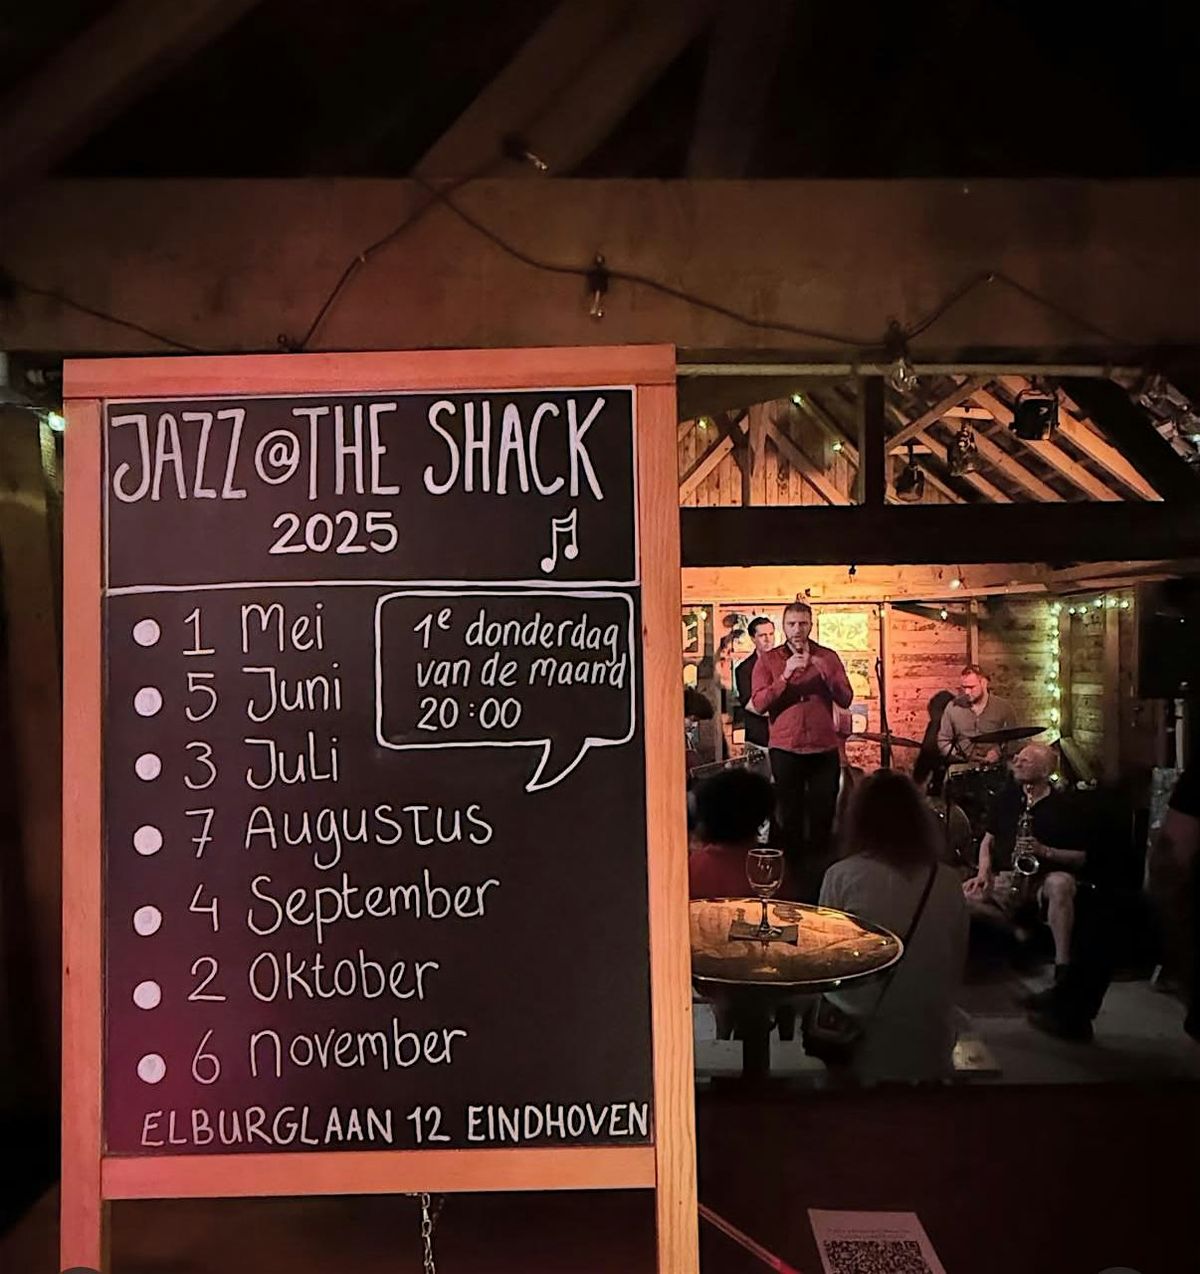 JAZZ @ THE SHACK
2025
1 Mei
5 Juni
3 Juli
7 Augustus
4 September
2 Oktober
6 November
1e donderdag
van de maand
20:00
ELBURGLAAN 12 EINDHOVEN